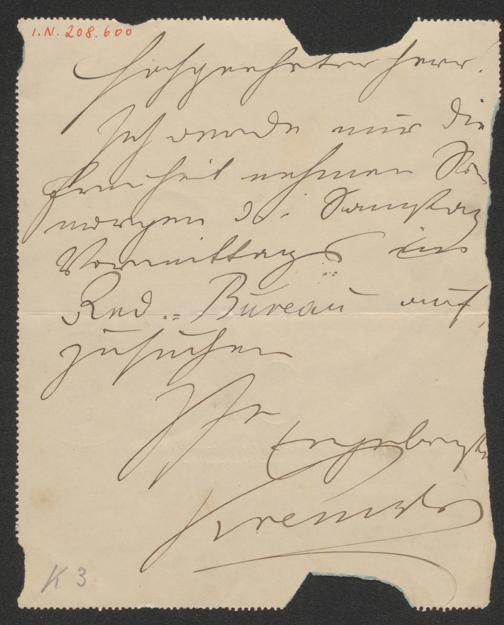 I.N. 208.600
Hochgeehrter Herr!
Ich werde mir die
Freiheit nehmen Sie
morgen d. i. Samstag
Vormittags im
Red.= Bureau auf,
zusuchen
Ihr
Ergebenster
Kremser
K 3